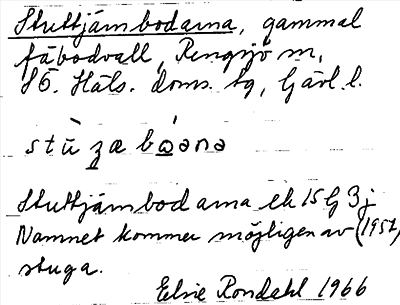 Stuttjämbodarna, gammal
fäbodvall, Rengsjö sn,
SÖ. Häls. doms. sg, Gävl. l.
Stuttjämbodarna ek 15 G 3 j
Namnet kommer möjligen av (1957)
stuga.
Elsie Rondahl 1966